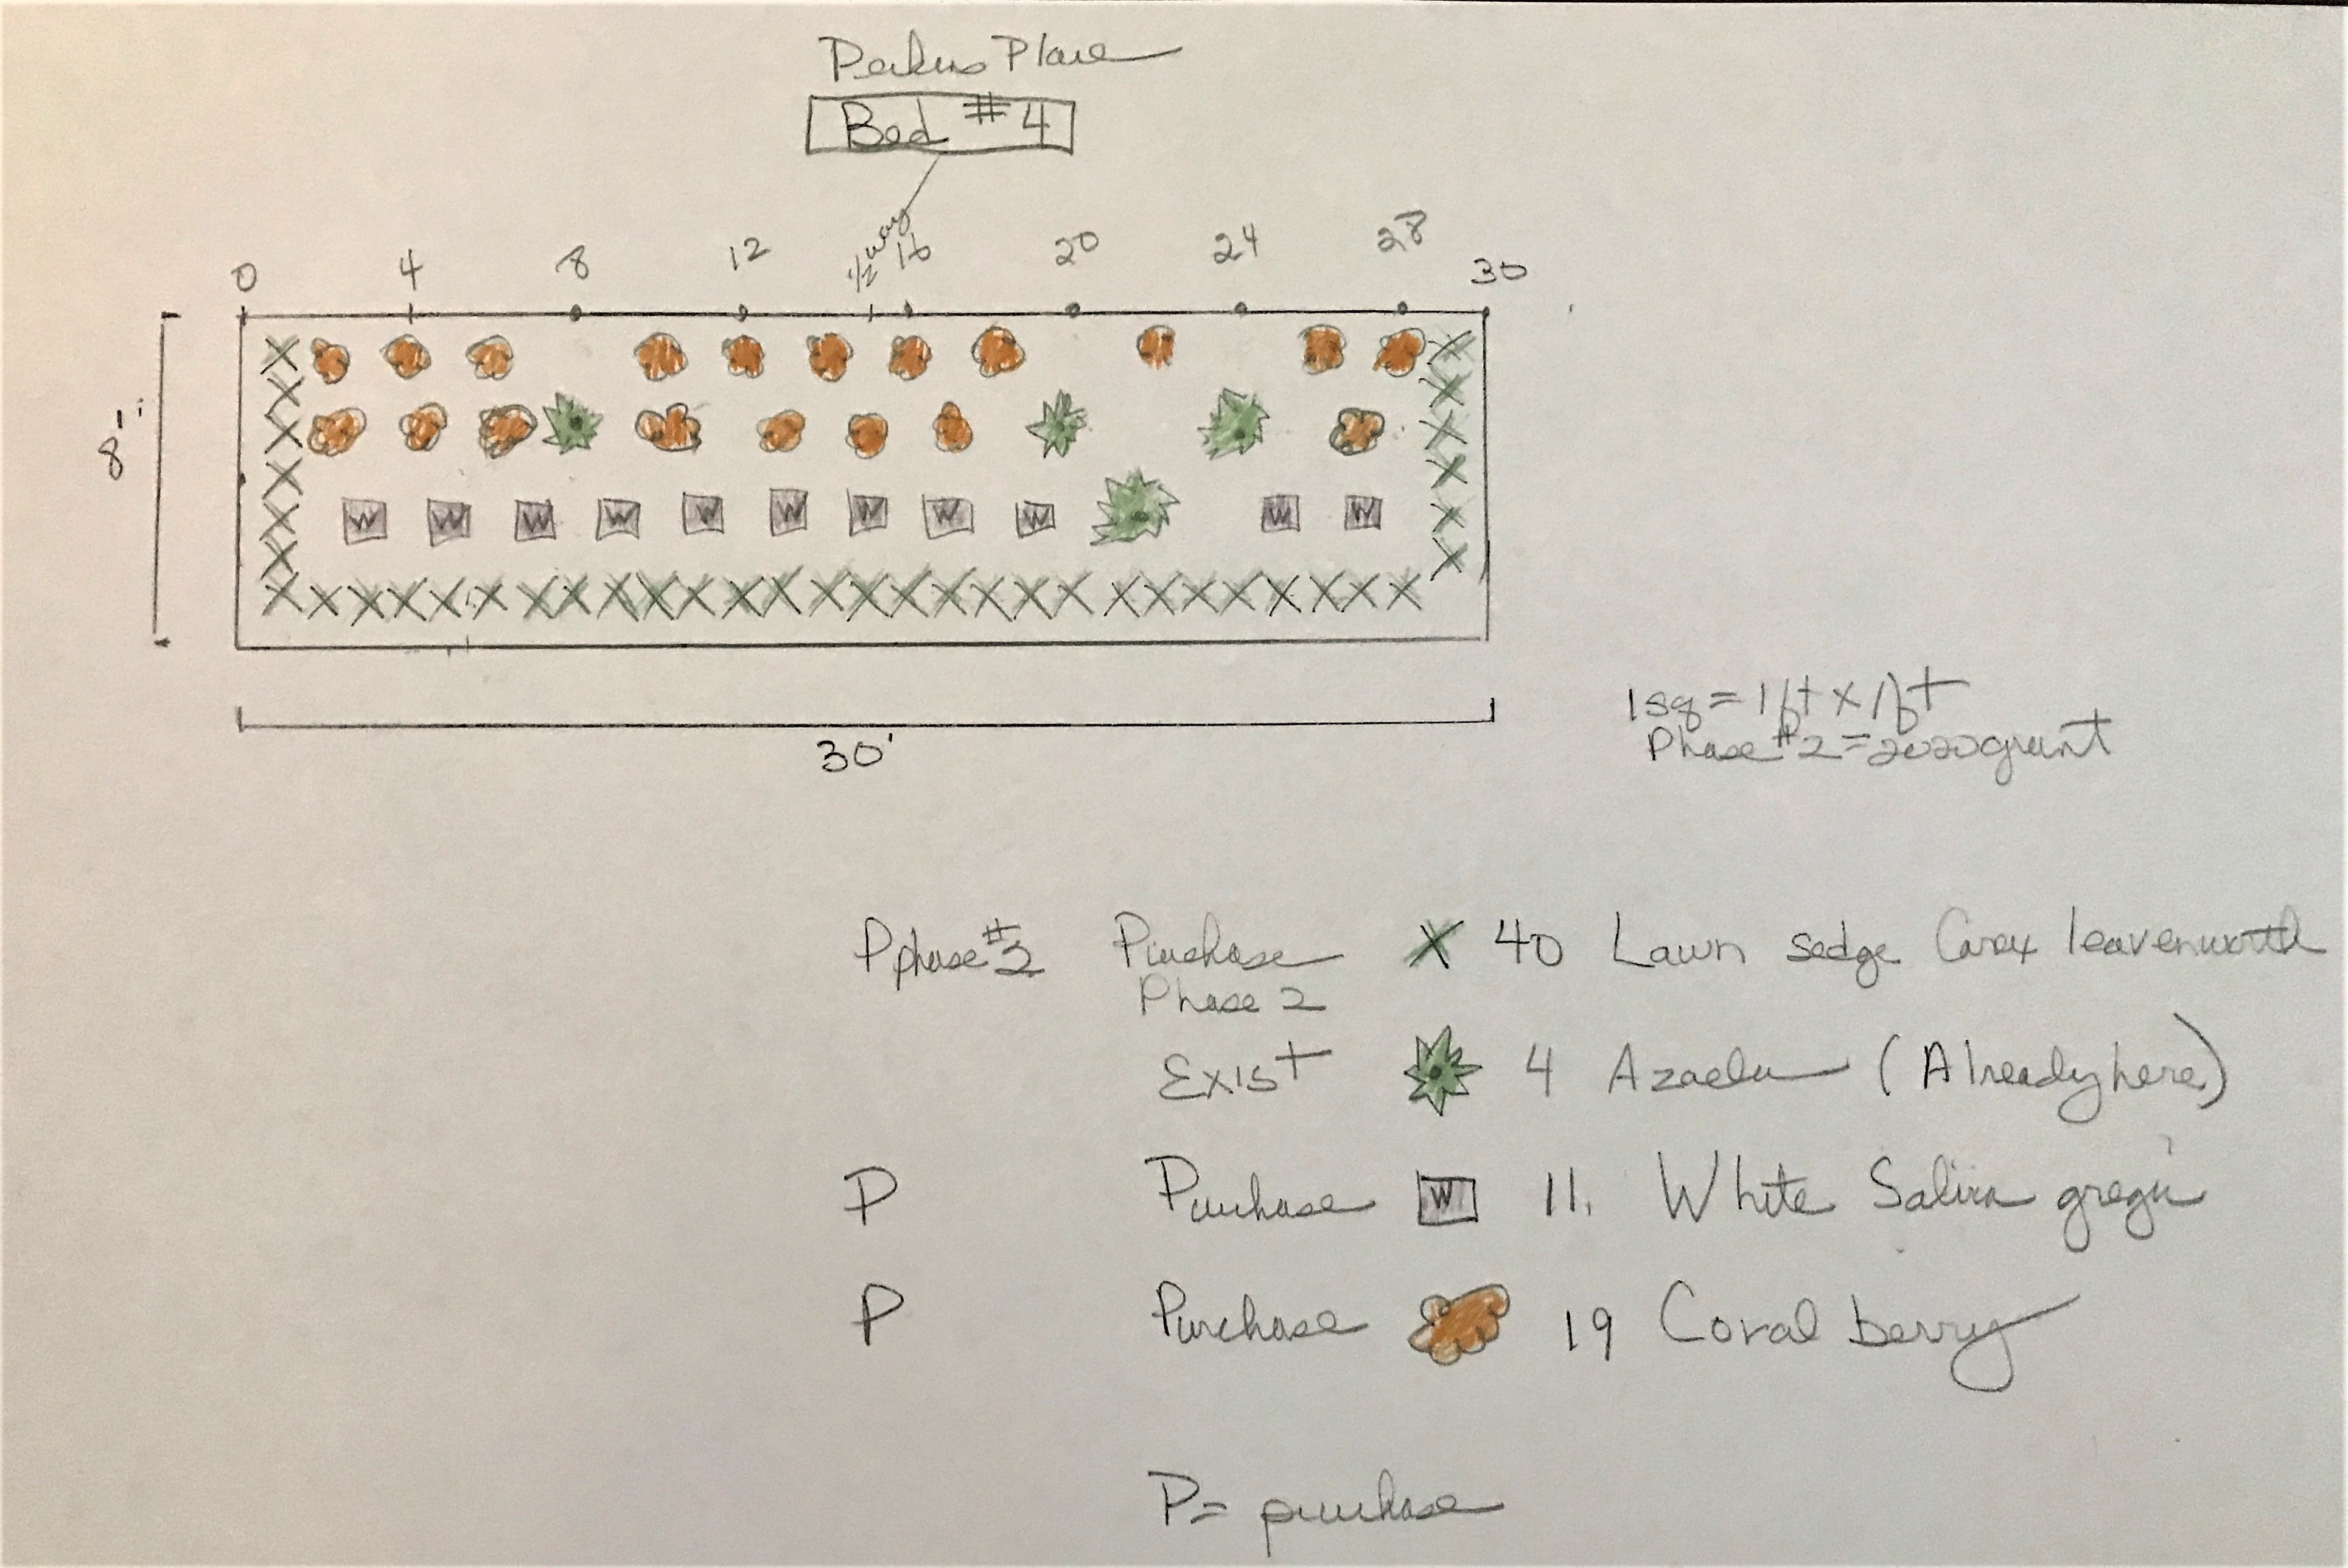 Perkins Place
Bed #4
0 4 8 12 1/2 way 16 20 24 28 30
8'
W W W W W W W W W W W
30'
1sq = 1ft x 1ft
Phase #2 = 2020 grant
P phase #2 Purchase X 40 Lawn sedge Carex leavenworth
Phase 2
Exist 4 Azaelea (Already here)
P Purchase W 11. White Salvia gregii
P Purchase 19 Coral berry
P = purchase